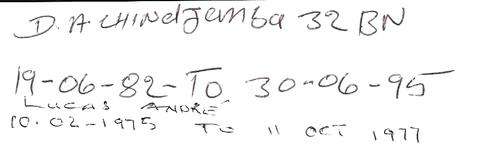 D. A CHINDJAMBA 32 BN
19-06-82-TO 30-06-95
LUCAS ANDRÉ
10.02-1975 TO 11 OCT 1977